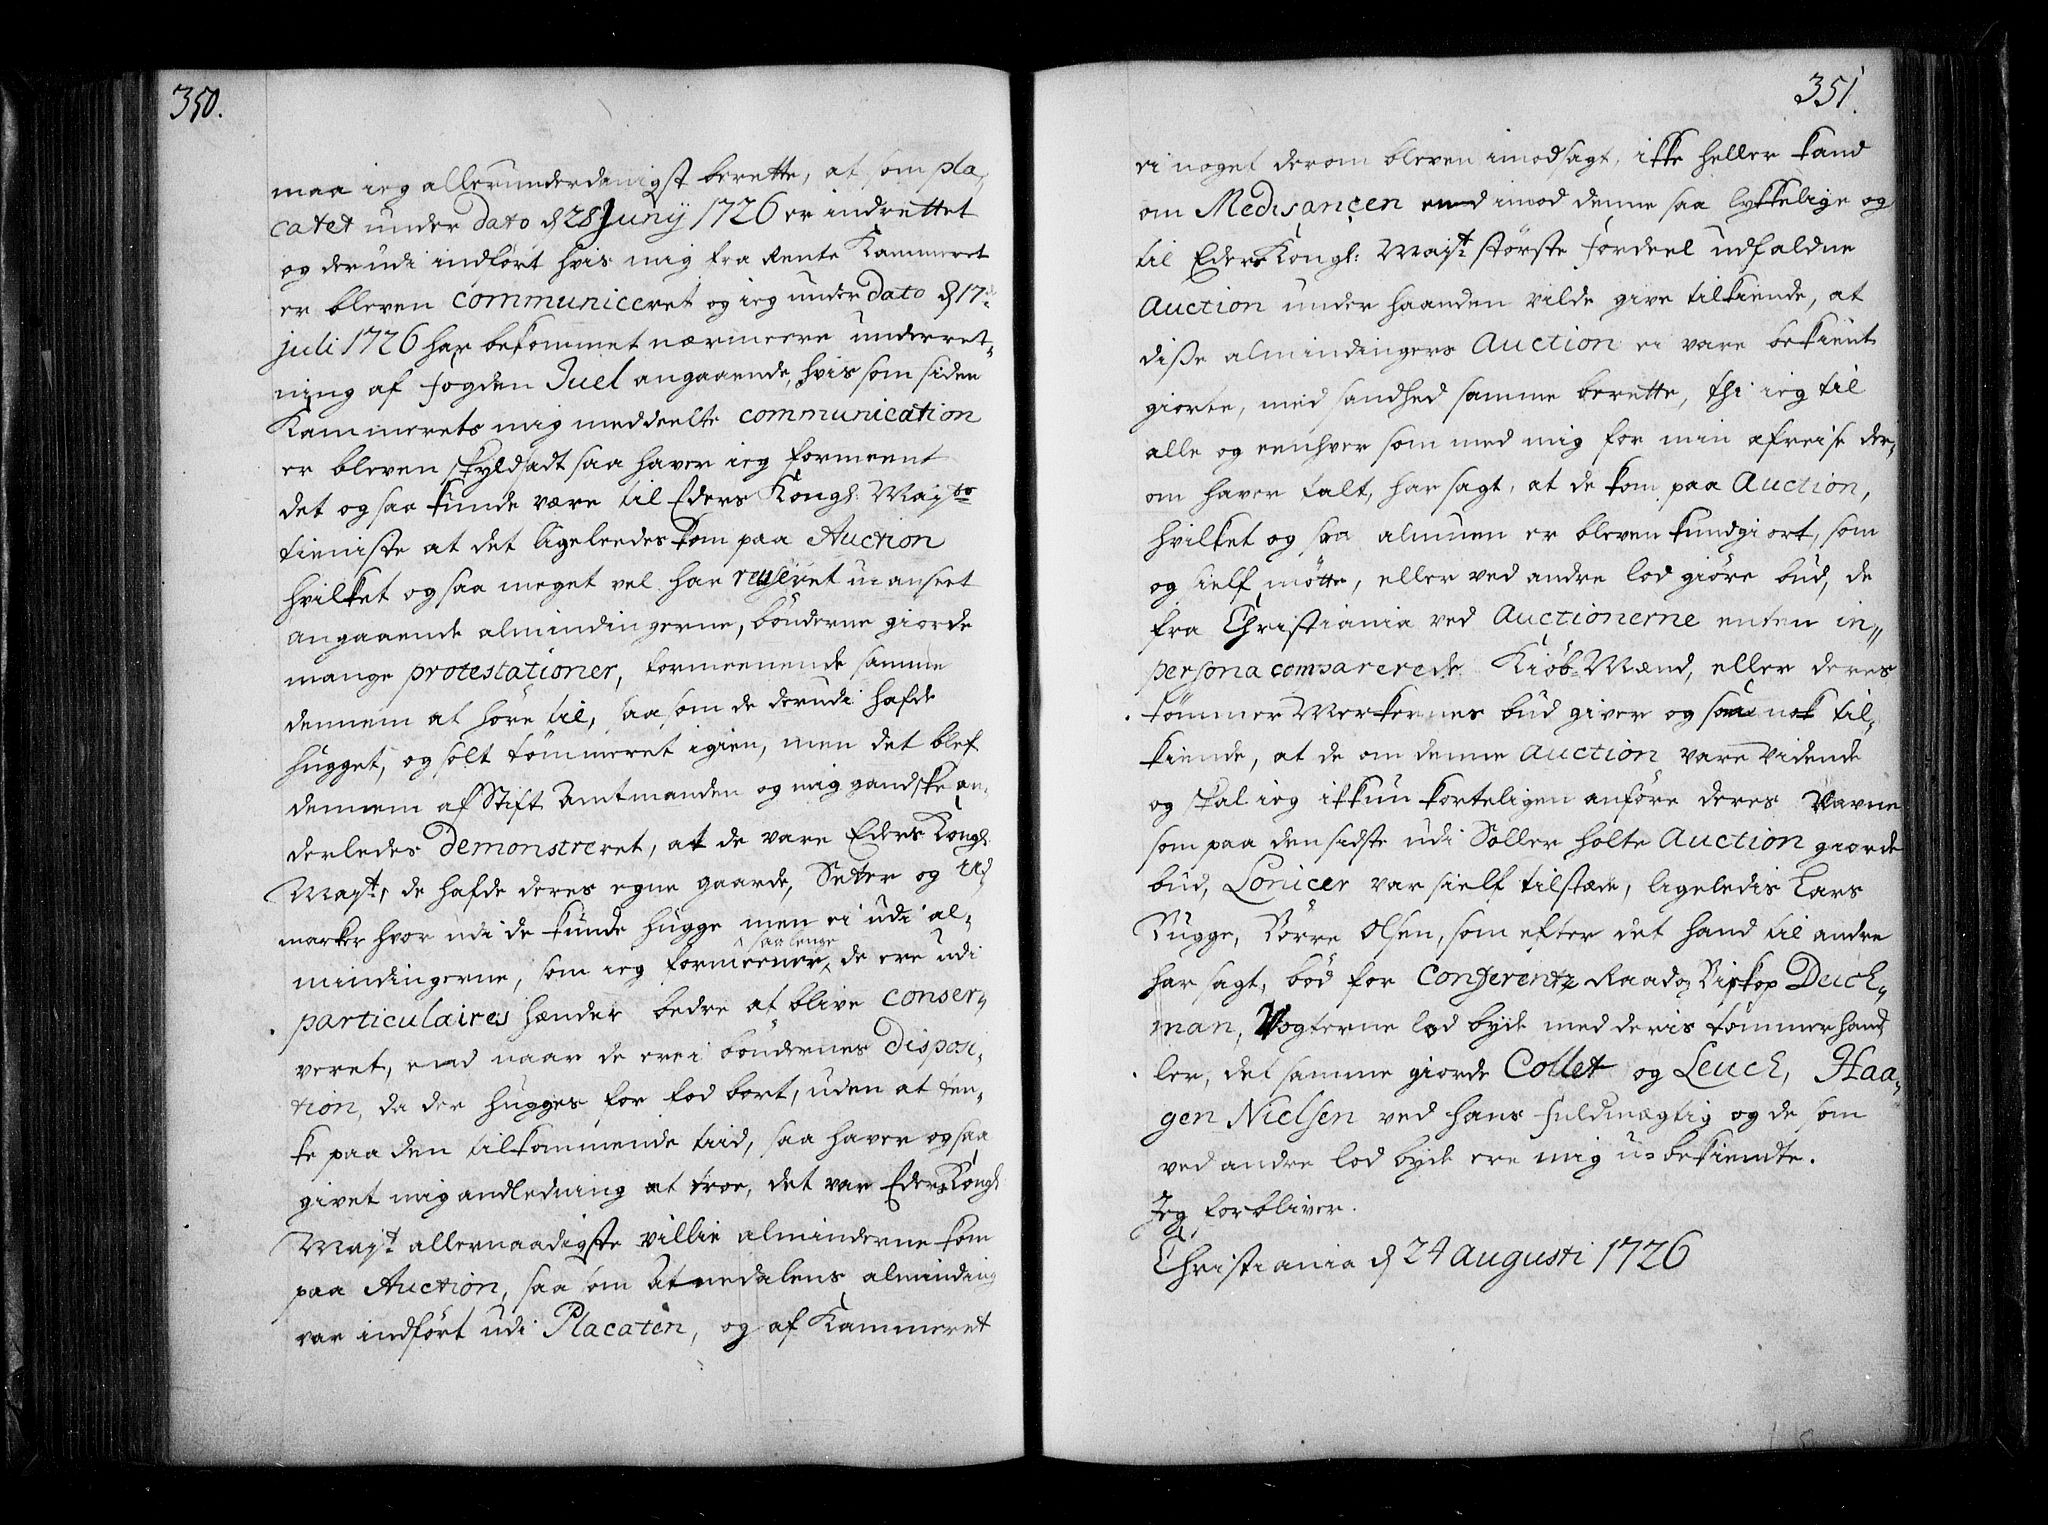 350.
maa ieg allerunderdanigst berette, at som pla„
catet under Dato d 28 Junÿ 1726 er indrettet
og derudi indført hvis mig fra Rente Kammeret
er bleven communiceret og ieg under Dato d 17de
juli 1726 har bekommet nærmeere underret„
ning af fogden Juel angaaende, hvis som siden
Kammerets mig meddeelte communication
er bleven skyldsadt saa haver ieg formeent
det ogsaa kunde være til Eders Kongl: Mayts
tieniste at det ligeleedes kom paa Auction
hvilket ogsaa meget vel har reuseret u-anseet
angaaende almindingerne, bønderne giorde
mange protestationer, formeenende samme
dennem at høre til, saasom de derudi hafde
hugget, og solt tømmeret igien, men det blef
dennem af Stift Amtmanden og mig gandske an„
derledes Demonstreret, at de vare Eders Kongl:
Mayts, de hafde deres egne gaarde, Setter og Ud„
marker hvor udi de kunde hugge men ei udi al„
mindingerne, som ieg formeener, saa lenge de ere udi
particulaires hænder bedre at blive conser„
veret, end naar de ere i bøndernes Disposi„
tion, da der hugges for fod bort, uden at ten„
ke paa den tilkommende tiid, saa haver ogsaa
givet mig andledning at troe, det var Eders Kongl
Mayts allernaadigste villie alminderne kom
paa Auction, saasom Atnedalens alminding
var indført udi Placaten, og af Kammeret
351.
ei noget derom bleven imodsagt, ikke heller kand
om Medisançen end imod denne saa lykkelige og
til Eders Kongl: Mayts største fordeel udfaldne
Auction under haanden vilde give tilkiende, at
diße almindingers Auction ei vare bekient
giorte, med sandhed samme berette, thi ieg til
alle og eenhver som med mig for min afreise der„
om haver talt, har sagt, at de kom paa Auction,
hvilket og saa almuen er bleven kundgiort, som
og self møtte, eller ved andre lod giøre bud, de
fra Christiania ved Auctionerne enten in„
persona comparerede Kiøb-Mænd, eller deres
tømmer Merkernes bud giver og saa nok til„
kiende, at de om denne Auction vare vidende
og skal ieg ikkun korteligen anføre deres Navne
som paa den sidste udi Soller holte Auction giorde
bud, Lonicer var sielf tilstæde, ligeledis Lars
Bugge, Børre Olsen, som efter det hand til andre
har sagt, bød for Conferentz Raad og Biskop Deich„
man, Vogterne lod byde med deris tømmerhand
ler, det samme giorde Collet og Leuch, Haa„
gen Nielsen ved hans fuldmægtig og de som
ved andre lod byde ere mig u-bekiendte.
Jeg forbliver.
Christiania d 24 augusti 1726